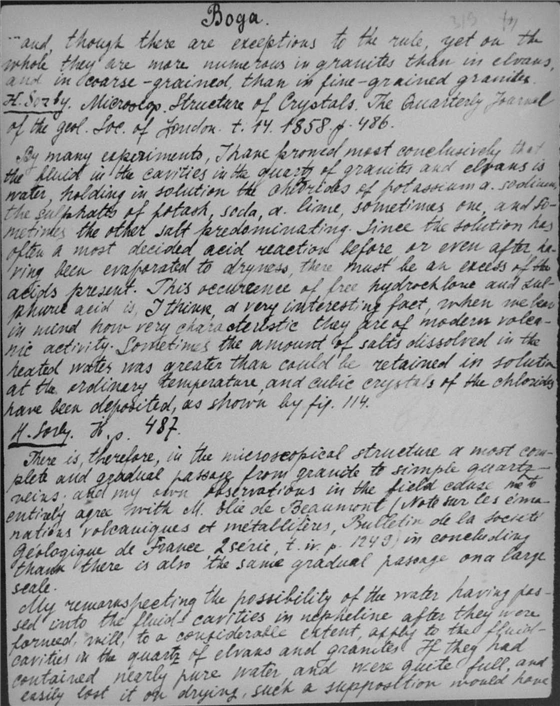 Вода.
...and, though there are exceptions to the rule, yet on the
whole they are more numerous in granites than in elvans,
and in coarse-grained, than in fine-grained granites.
H. Sorby. Microscop. Structure of Crystals. The Quarterly Journal
of the geol. Soc. of London. t. 14. 1858. p. 486.
By many experiments, I have proved most conclusively that
the fluid in the cavities in the quartz of granites and elvans is
water, holding in solution the chlorides of potassium a. sodium
the sulphatts of potash, soda, a. lime, sometimes one, and so-
metimes the other salt predominating. Since the solution has
often a most decided acid reaction before or even after ha-
ving been evaporated to dryness, there must be an excess of the
acids present. This occurence of free hydrochlone and sul-
phuric acid is, I think, a very interesting fact, when we bear
in mind how very characteristic they are of modern volca-
nic activity. Sometimes the amount of salts dissolved in the
heated water was greater than could be retained in solution
at the ordinary temperature, and cubic crystals of the chlorides
have been deposited, as shown by fig. 114.
H. Sorby. p. 487
There is, therefore, in the microscopical structure a most com-
plete and gradual passage from granite to simple quartz-
veins; and my own observations in the field me
entirely agree with M. Elie de Beaumont (Note sur les éma-
nations volcaniques et métallifères, Bulletin de la societé
Géologique de France, 2 série, t. iv. p. 1249) in concluding
there is also the same gradual passage on a large
scale.
My the possibility of the water having pas-
sed into the fluid-cavities in nepheline after they were
formed, will, to a considerable extent, apply to the fluid-
cavities in the quartz of elvans and granites. If they had
contained nearly pure water and were quite full, and
easily lost it on drying, such a supposition would have